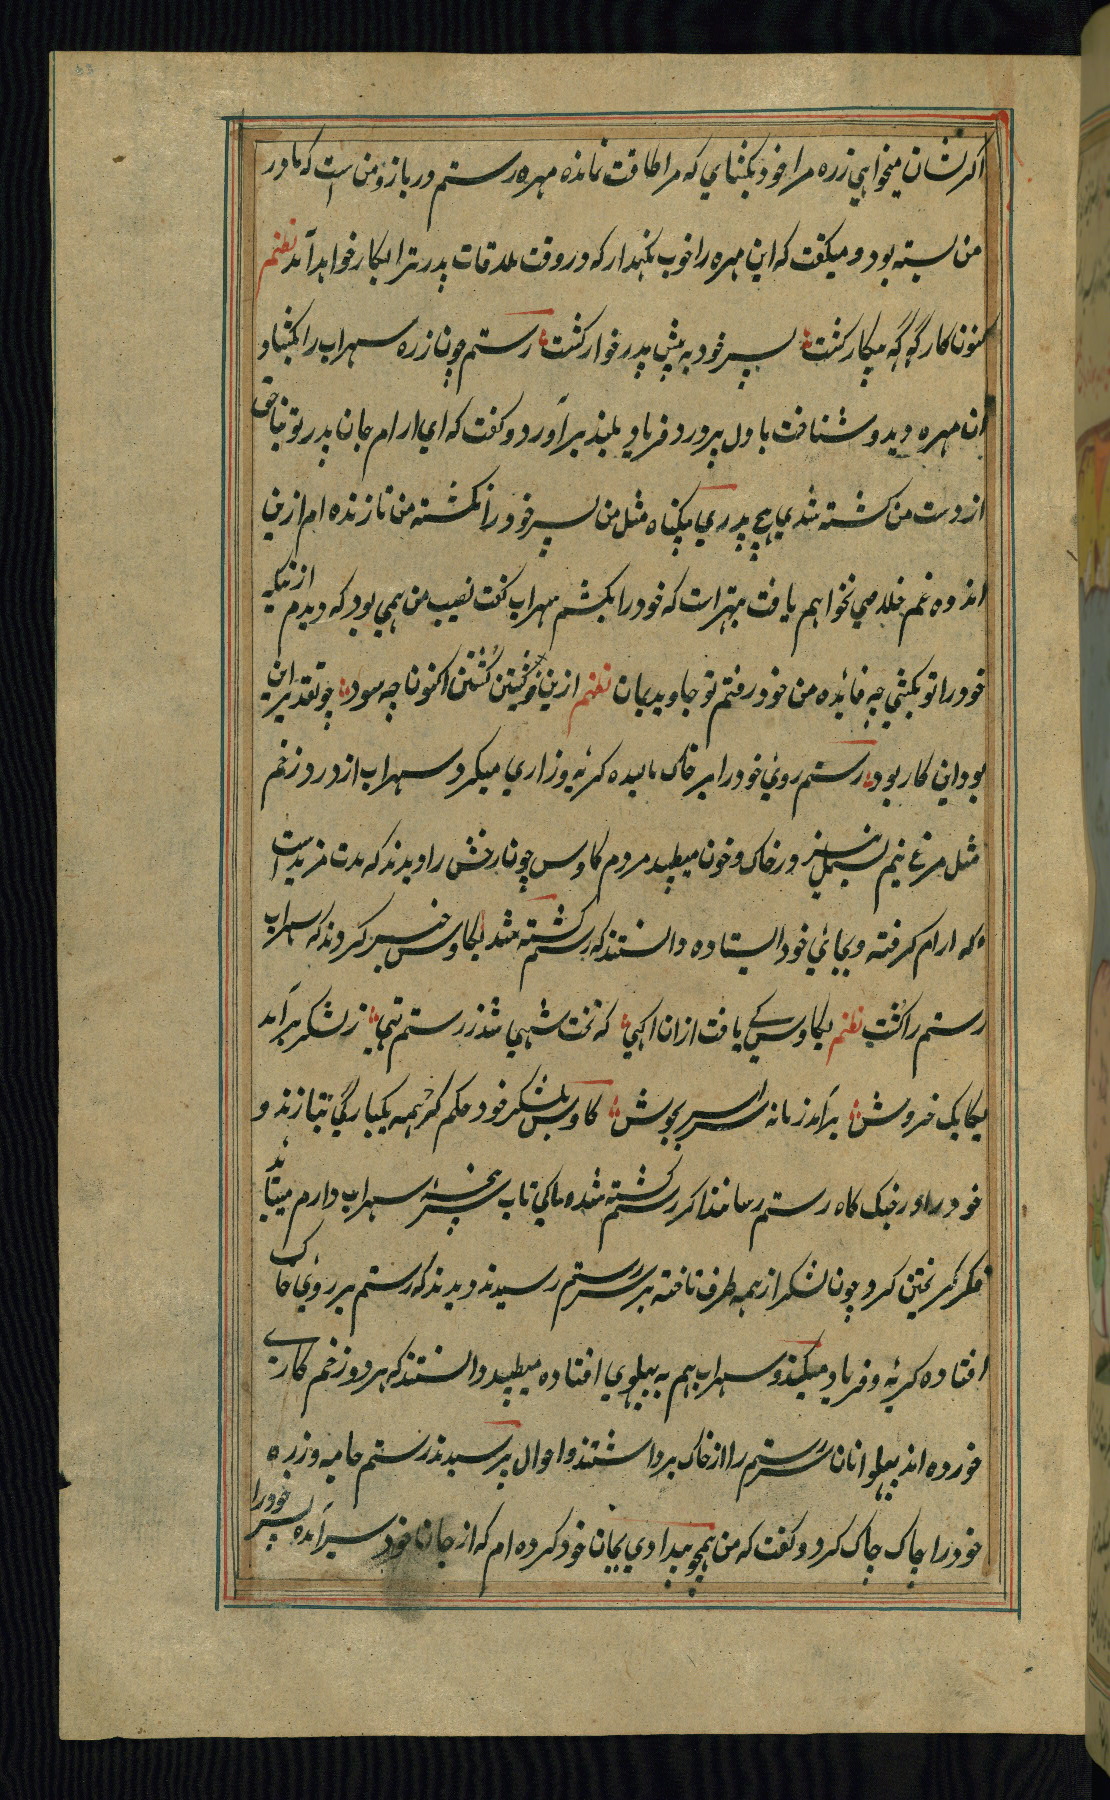 اکر نشان میخواهي زره مرا خود بکشاي که مرا طاقت نمانده مهره رستم در بازو من است که مادر
من بسته بود و میکفت که این مهره را خوب نکهدار که در وقت ملاقات پدر ترا بکار خواهد آمد نظم
کنون کار که بیکار کشت پسر خود به پیش پدر خوار کشت رستم چون زره سهراب را بکشاد
ان مهره دید و شناخت با دل پر درد فریاد بلند برآورد و کفت که اي ارام جان پدر تو بناحق
از دست من کشته شدي هیچ پدري بیکناه مثل من پسر خود را نکشته من تا زنده ام ازین
اندوه غم خلاصي نخواهم یافت بهتر است که خود را بکشم سهراب کفت نصیب من همي بود که دیدم از نیکه
خود را تو بکشي چه فائده من خود رفتم تو جاوید بمان نظم ازین خویشتن کشتن اکنون چه سود چو تقدیر این
بود این کار بود رستم روي خود را بر خاک مالیده کریه وزاري میکرد سهراب از درد زخم
مثل مرغ نیم بسمل در خاک و خون میطپید مردم کاوس چون رخش را دیدند که مدت مزید است
که ارام کرفته و بجائي خود ایستاده دانستند که رستم کشته شد بکاوس خبر کردند که سهراب
رستم را کشت نظم بکاوس کي یافت ازان اکهي که تخت شهي شد ز رستم تهي ز لشکر برآمد
یکایک خروش برآمد زمانه سراسر بجوش کاوس بلشکر خود حکم کرد همه یکبارکي بتازند و
خود را در جنک کاه رستم رسانند اکر رستم کشته شده ما کي تاب پنجه سهراب داریم میباید
فکر کریختن کرد چون لشکر از همه طرف تاخته بر سر رستم رسیدند دیدند که رستم بر روي خاک
افتاده کریه و فریاد میکند و سهراب هم به پهلوي افتاده میطپید دانستند که هر دو زخم کاري
خورده اند پهلوانان سر رستم را از خاک برداشتند و احوال پرسیدند رستم جامه و زره
خود را چاک چاک کرد و کفت که من همچو بیدادي بجان خود کرده ام که از جان خود سیر آمده پسر خود را